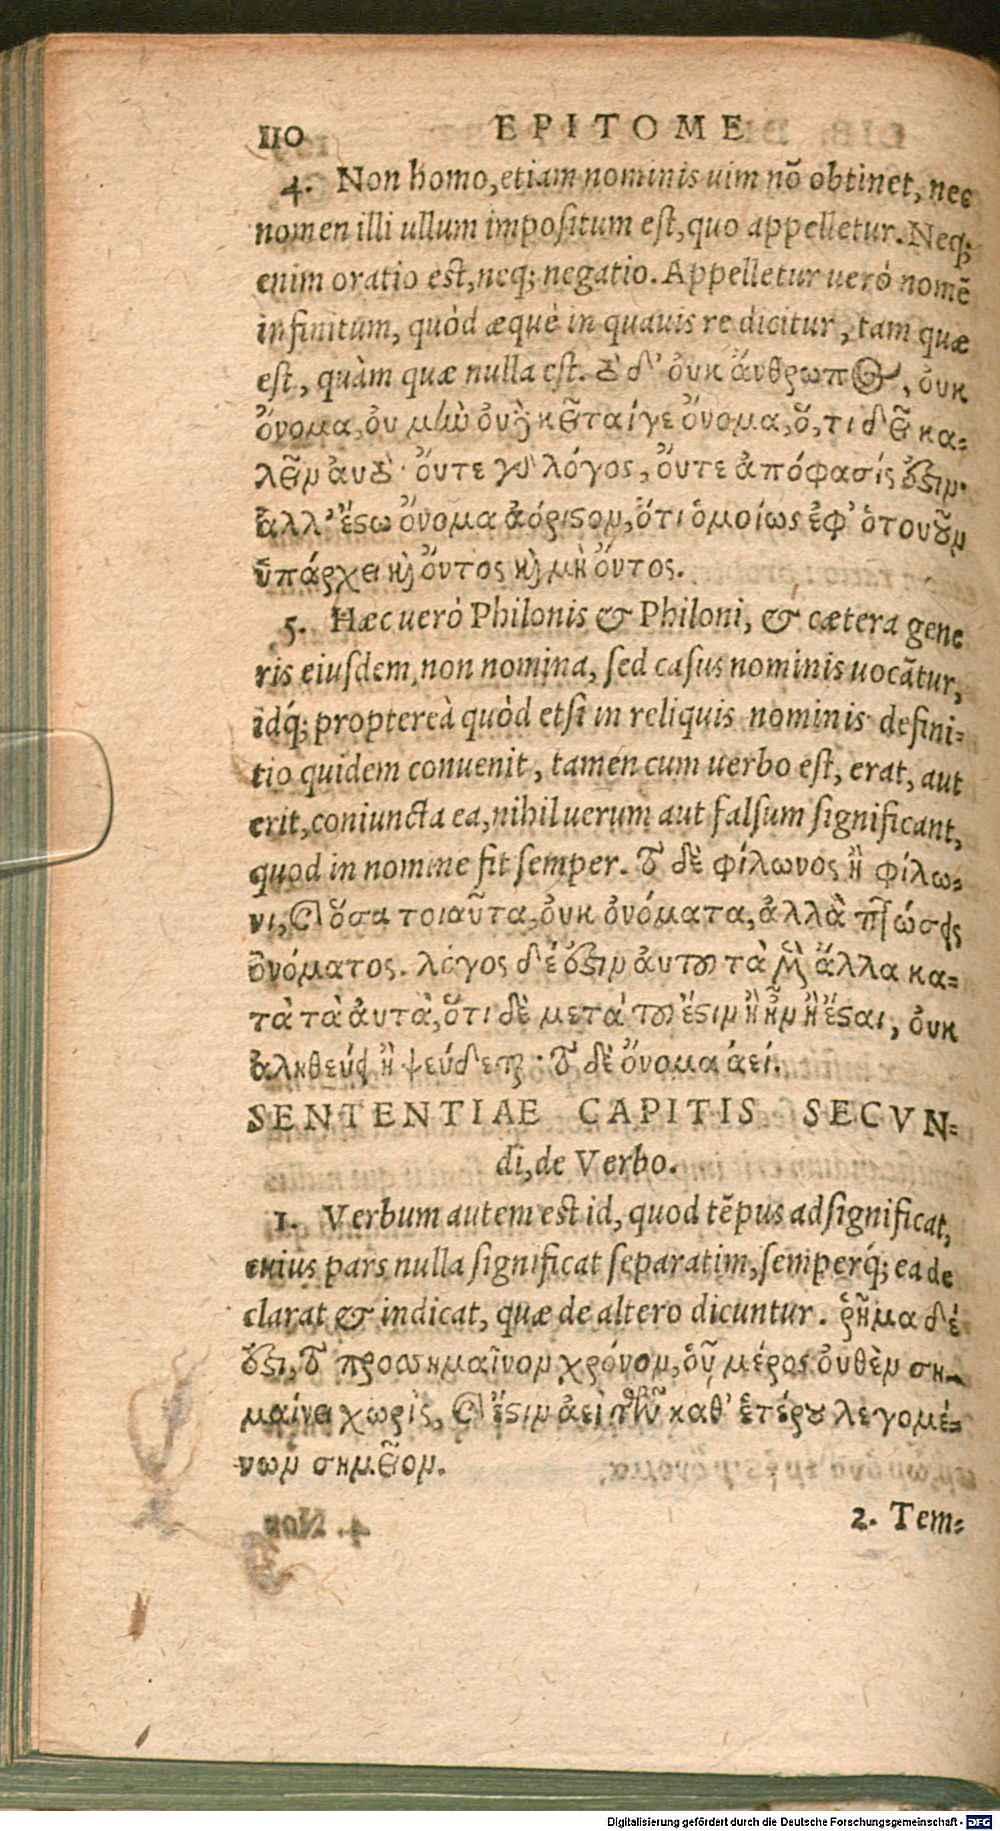 110 EPITOME
4. Non homo, etiam nominis uim nõ obtinet, nec
nomen illi ullum impositum est, quo appelletur. Neq;
enim oratio est, neq; negatio. Appelletur uerò nomẽ
infinitum, quòd æquè in quauis re dicitur, tam quæ
est, quàm quæ nulla est. τὸ δ' οὐκ ἄνθρωπος, οὐκ
ὄνομα, οὐ μὴν οὐδὲ κεῖταί γε ὄνομα, ὅ, τι δεῖ κα-
λεῖν ἀυτό· ὄυτε γὰρ λόγος, ὄυτε ἀπόφασίς ὄξιν.
ἀλλ' ἔςω ὄνομα ἀόριςον, ὅτι ὁμοίως ἐφ' ὁτουοῦν
ὑπάρχει καὶ ὄντος καὶ μὴ ὄντος.
5. Hæc uerò Philonis & Philoni, & cætera gene
ris eiusdem, non nomina, sed casus nominis uocãtur,
idq́; proptereà quòd etsi in reliquis nominis defini-
tio quidem conuenit, tamen cum uerbo est, erat, aut
erit, coniuncta ea, nihil uerum aut falsum significant,
quod in nomine fit semper. τὸ δὲ φίλωνος ἢ φίλω-
νι, καὶ ὅσα τοιαῦτα, οὐκ ὀνόματα, ἀλλὰ πτώσεις
ὀνόματος. λόγος δέ ἐςιν ἀυτοῦ τὰ μὲν ἄλλα κα-
τὰ τὰ ἀυτὰ, ὅτι δὲ μετὰ τοῦ ἔςιν ἢ ἦν ἢ ἔςαι, οὐκ
ἀληθεύει ἢ ψεύδεται· τὸ δὲ ὄνομα ἀεί.
SENTENTIAE CAPITIS SECVN-
di, de Verbo.
1. Verbum autem est id, quod tẽpus adsignificat,
cuius pars nulla significat separatim, semperq́; ea de
clarat & indicat, quæ de altero dicuntur. ῥῆμα δέ
ἐςι, τὸ προσσημαῖνον χρόνον, οὗ μέρος οὐθὲν ση-
μαίνει χωρὶς, καὶ ἔςιν ἀεὶ τῶν καθ' ἑτέρου λεγομέ-
νων σημεῖον.
2. Tem-
Digitalisierung gefördert durch die Deutsche Forschungsgemeinschaft - DFG